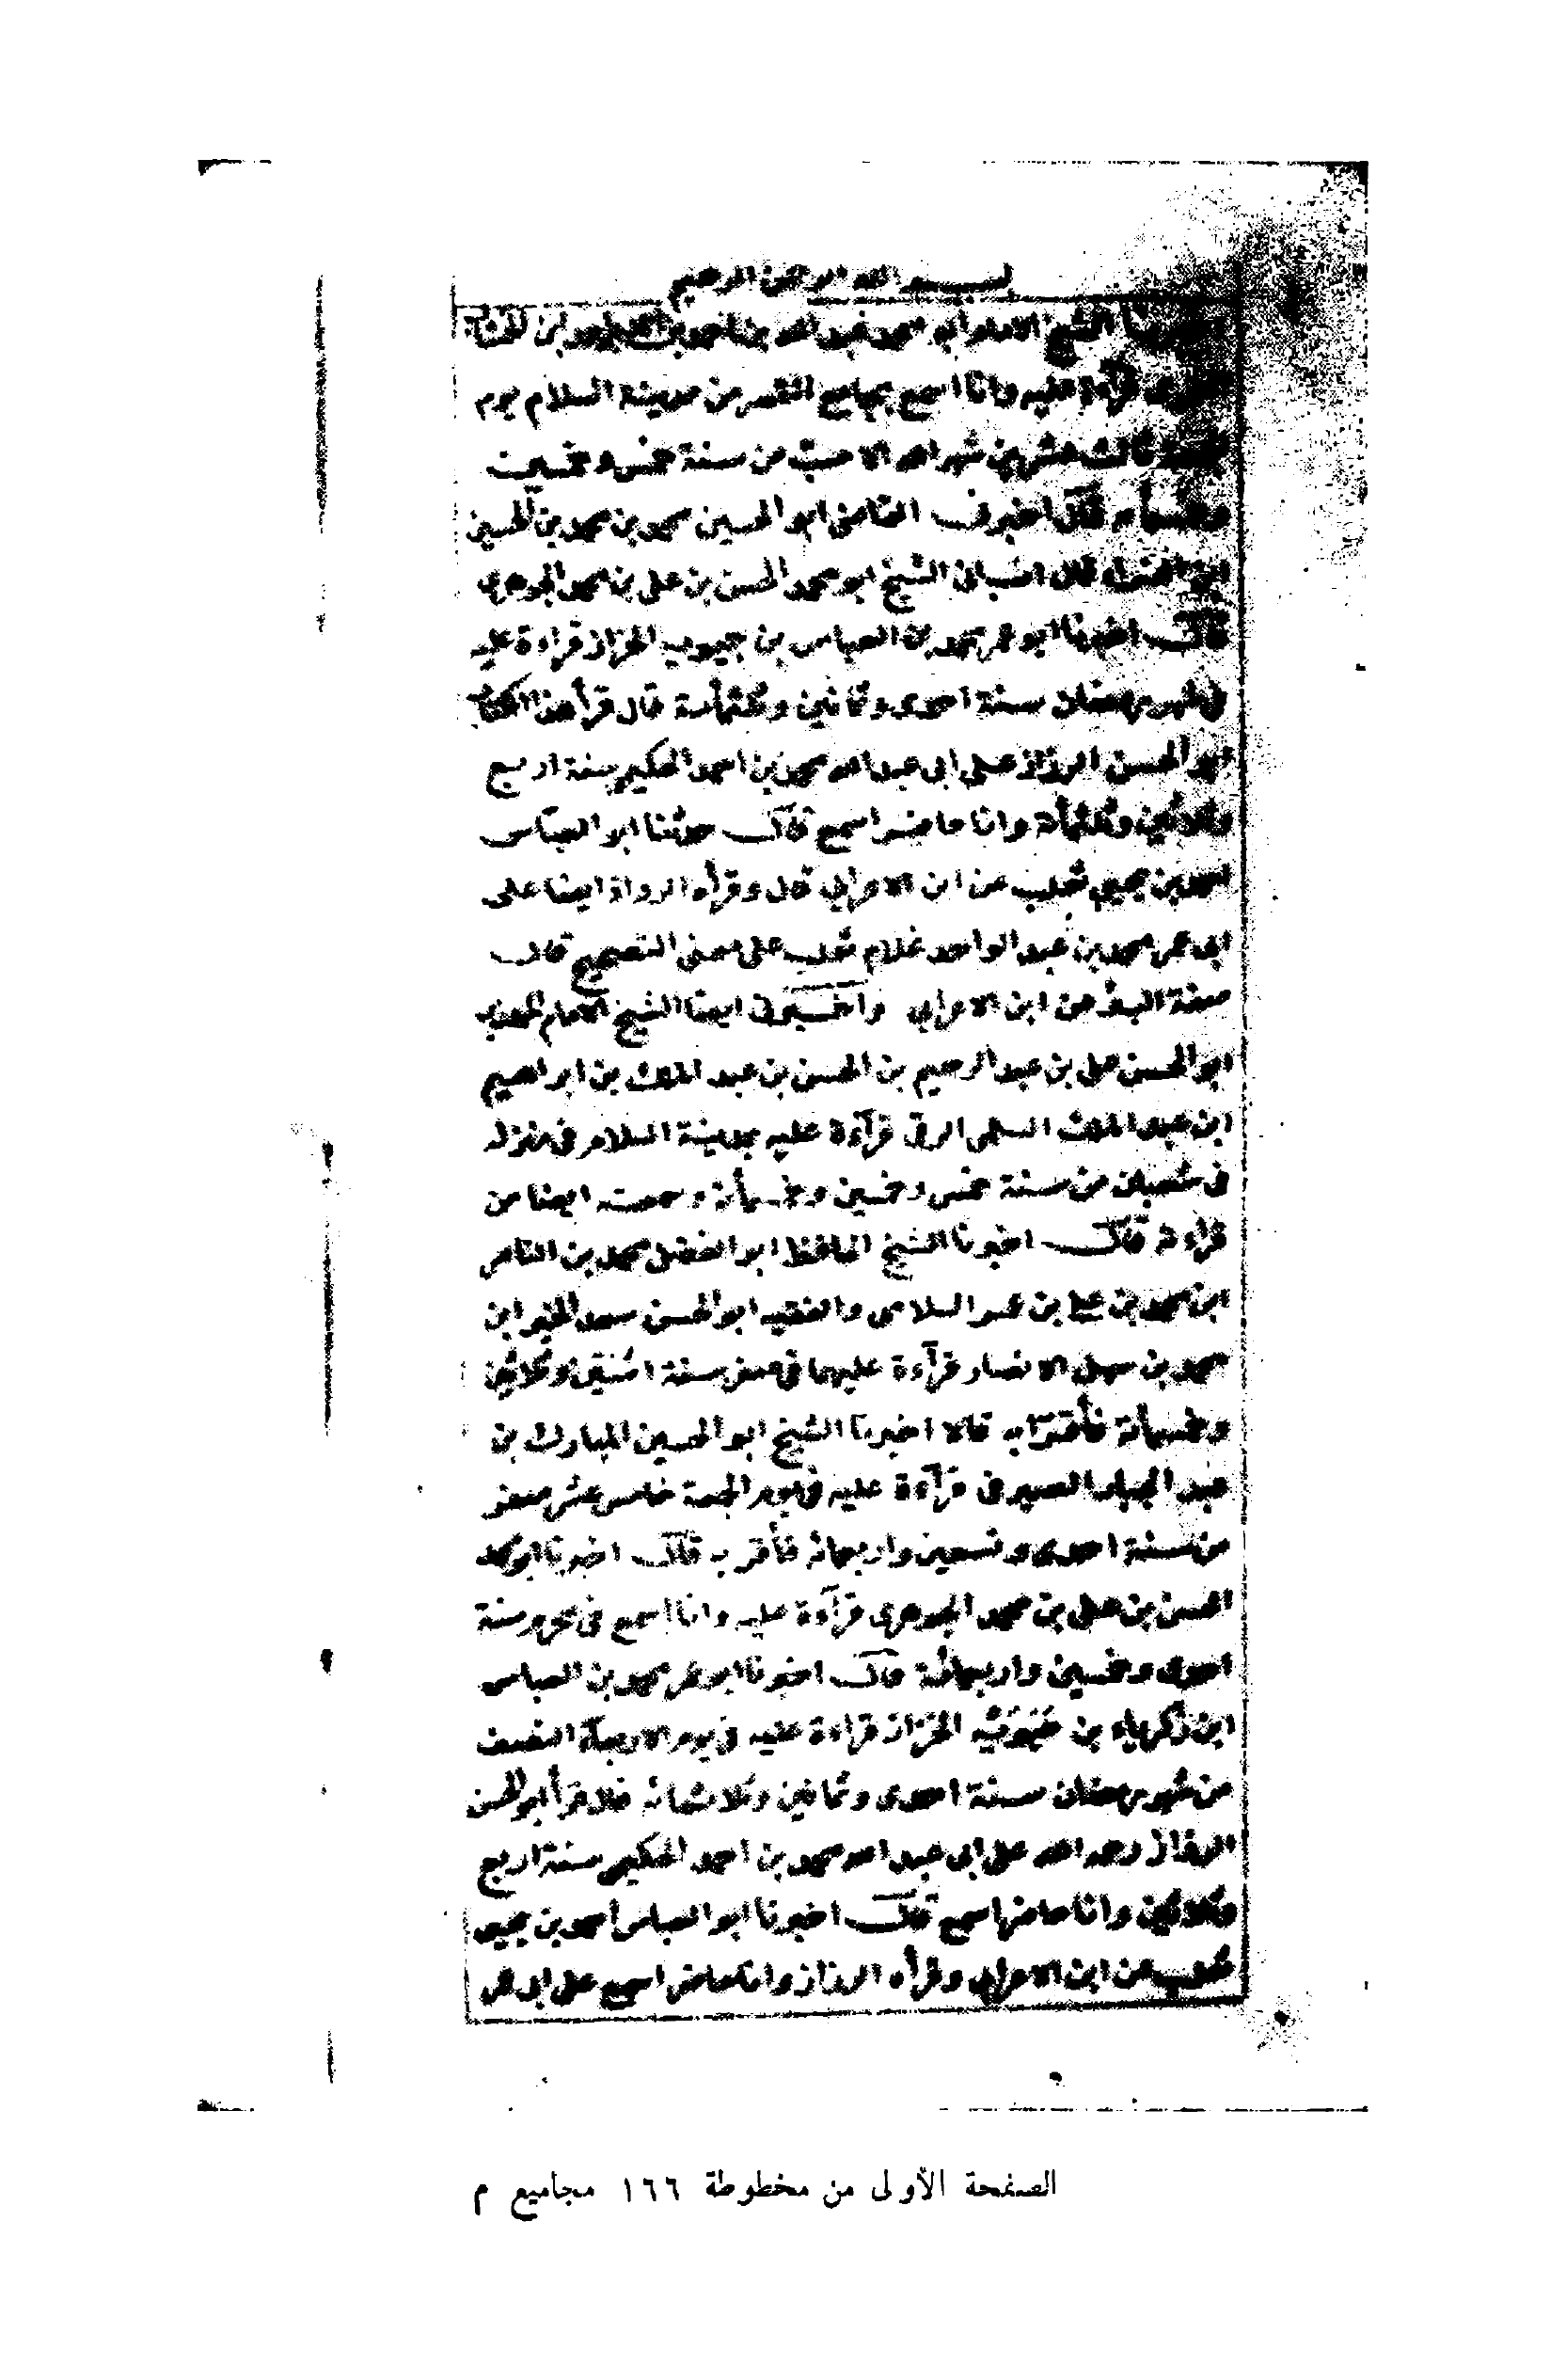 بسم الله الرحمن الرحيم
الشيخ الامام أبو محمد عبد الله بن احمد بن احمد بن احمد ابن الخشاب
قرآءة عليه وانا اسمع بجامع القصر من مدينة السلام يوم
ثالث عشرين شهر الله الاصب من سنة خمس وخمسين
وخمسمأه قال اخبرني القاضي ابو الحسين محمد بن محمد بن الحسين
ابن الفراء قال انبأني الشيخ ابو محمد الحسن بن علي بن محمد الجوهري
قال اخبرنا ابو عمر محمد بن العباس بن حيويه الخزاز قراءة عليه
في شهر رمضان سنة احدى وثمانين وثلثمأية قال قرأ هذا الكتاب
ابو الحسن الرزاز على ابي عبد الله محمد بن احمد الحكيمي سنة اربع
وثلاثين وثلثمأة وانا حاضر اسمع قال حدثنا ابو العباس
احمد بن يحيى ثعلب عن ابن الاعرابي قال وقرأه الرزاز ايضا على
ابي عمر محمد بن عبد الواحد غلام ثعلب على معنى التصحيح قال
صفة البئر عن ابن الاعرابي واخبرني ايضا الشيخ الامام المهذب
ابو الحسن علي بن عبد الرحيم بن الحسن بن عبد الملك بن ابراهيم
ابن عبد الملك السلمي الرقي قرآءة عليه بمدينة السلام في منزله
في شعبان من سنة خمس وخمسين وخمسمأة وسمعته ايضا من
قراءة قال اخبرنا الشيخ الحافظ ابو الفضل محمد بن الناصر
ابن محمد بن علي بن عمر السلامي والفقيه ابو الحسن سعد الخير ابن
محمد بن سهل الانصار قرآءة عليهما في صفر سنة اثنتين وثلاثين
وخمسمأة فأقرّا به قالا اخبرنا الشيخ ابو الحسين المبارك بن
عبد الجبار الصيرفي قرآءة عليه في يوم الجمعة خامس عشر صفر
من سنة احدى وتسعين واربعمائة فأقر به قال اخبرنا ابو محمد
الحسن بن علي بن محمد الجوهري قرآءة عليه وانا اسمع في محرم سنة
احدى وخمسين واربعمائة قال اخبرنا ابو عمر محمد بن العباس
ابن زكرياء بن حَيَّوَيْه الخزاز قراءة عليه في يوم الاربعآء النصف
من شهر رمضان سنة احدى وثمانين وثلاثمائة قال قرأ ابو الحسن
الرزاز رحمه الله على ابي عبد الله محمد بن احمد الحكيمي سنة اربع
وثلاثين وانا حاضر اسمع قال اخبرنا ابو العباس احمد بن يحيى
ثعلب عن ابن الاعرابي وقرأه الرزاز وانا حاضر اسمع على ابي عمر
الصفحة الأولى من مخطوطة ١٦٦ مجاميع م